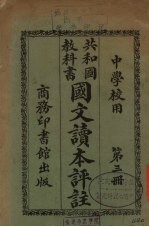 中學校用
第三冊
共和國
教科書
國文讀本評註
商務印書館出版